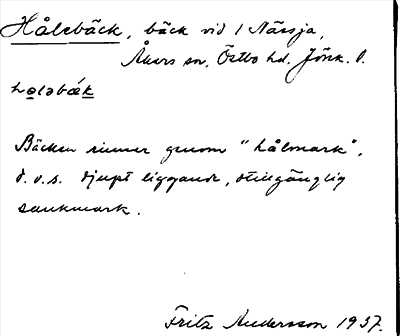 Hålebäck, bäck vid 1 Nässja,
Åkers sn, Östbo hd. Jönk. l.
hɷləbæk
Bäcken rinner genom "hålmark",
d.v.s. djupt liggande, otillgänglig
sankmark.
Fritz Andersson 1937.